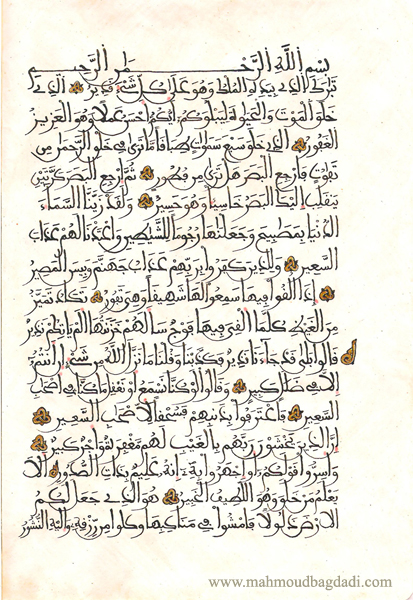 بسم الله الرحمن الرحيم
تبارك الذي بيده الملك وهو على كل شيء قدير الذي
خلق الموت والحيوة ليبلوكم أيكم أحسن عملا وهو العزيز
الغفور الذي خلق سبع سموات طباقا ما ترى في خلق الرحمن من
تفوت فارجع البصر هل ترى من فطور ثم ارجع البصر كرتين
ينقلب إليك البصر خاسئا وهو حسير ولقد زينا السماء
الدنيا بمصبيح وجعلنها رجوما للشيطين وأعتدنا لهم عذاب
السعير وللذين كفروا بربهم عذاب جهنم وبيس المصير
إذا ألقوا فيها سمعوا لها شهيقا وهي تفور تكاد تميز
من الغيظ كلما ألقي فيها فوج سألهم خزنتها ألم يأتكم نذير
قالوا بلى قد جاءنا نذير فكذبنا وقلنا ما نزل الله من شيء إن أنتم
إلا في ضلل كبير وقالوا لو كنا نسمع أو نعقل ما كنا في أصحب
السعير فاعترفوا بذنبهم فسحقا لأصحب السعير
إن الذين يخشون ربهم بالغيب لهم مغفرة وأجر كبير
وأسروا قولكم أو اجهروا به إنه عليم بذات الصدور ألا
يعلم من خلق وهو اللطيف الخبير هو الذي جعل لكم
الأرض ذلولا فامشوا في مناكبها وكلوا من رزقه وإليه النشور
www.mahmoudbagdadi.com